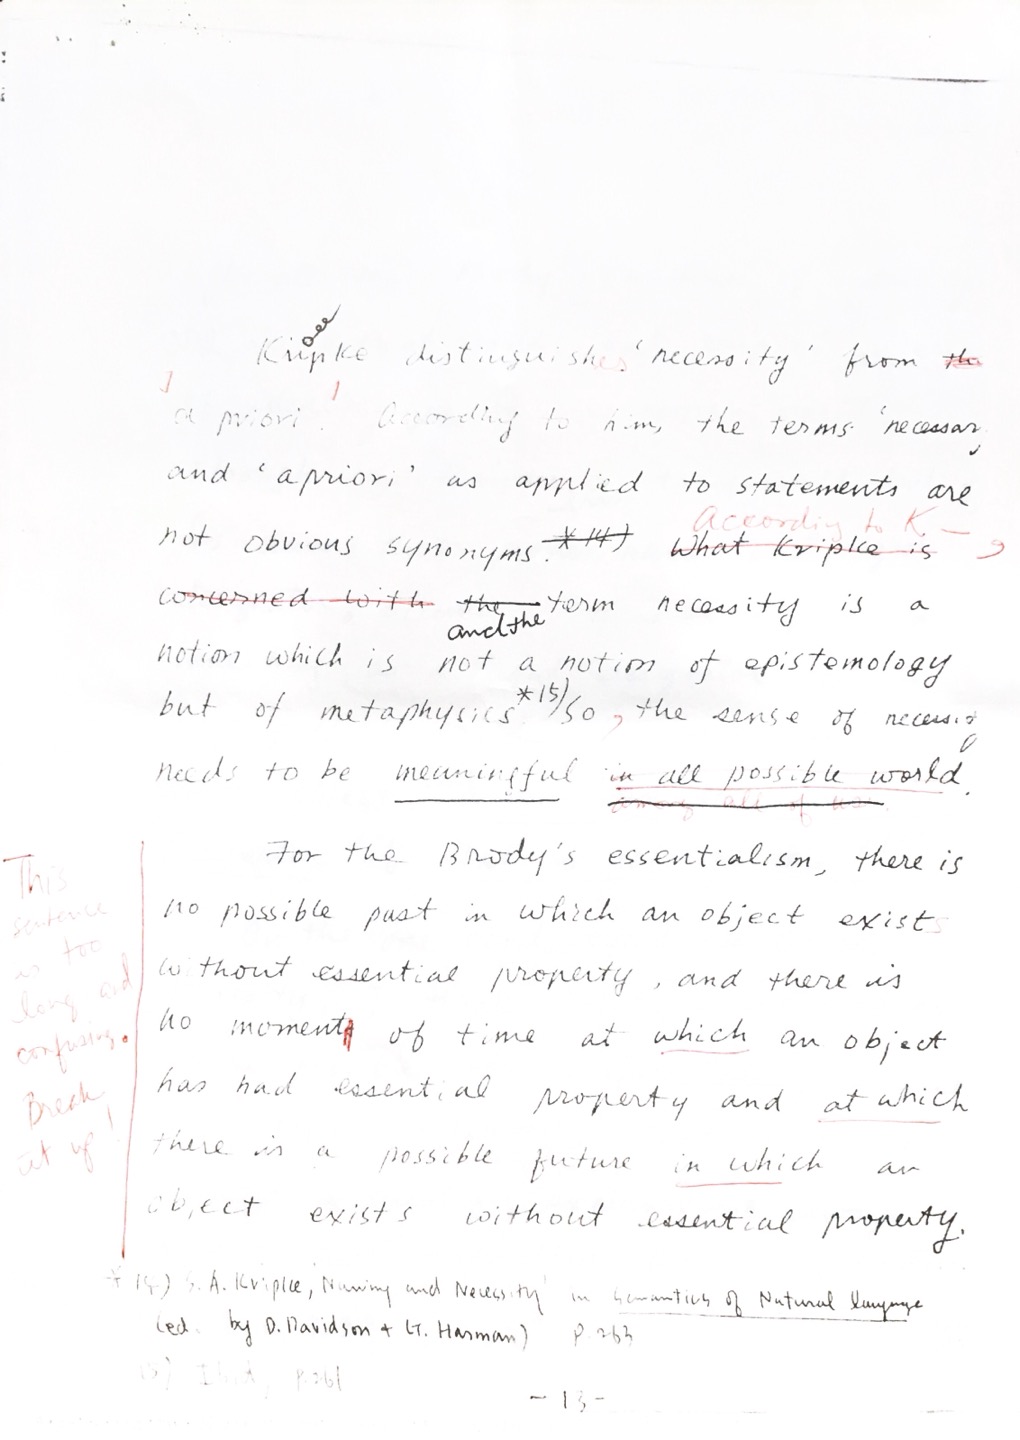 Kripke distinguishes 'necessity' from th
a priori'. According to him, the terms 'necessary
and 'a priori' as applied to statements are
not obvious synonyms. *14) What Kripke is
According to K—,
concerned with the term necessity is a
and the
notion which is not a notion of epistemology
but of metaphysics *15) So, the sense of necessity
needs to be meaningful in all possible world.
among all of
For the Brody's essentialism, there is
no possible past in which an object exists
without essential property, and there is
no moment of time at which an object
has had essential property and at which
there is a possible future in which an
object exists without essential property.
This
sentence
is too
long and
confusing.
Break
it up!
* 14) S. A. Kriplce, 'Naming and Necessity' in Semantics of Natural language
(ed. by D. Davidson + G. Harman) p. 263
15) Ibid, p. 261
- 13 -